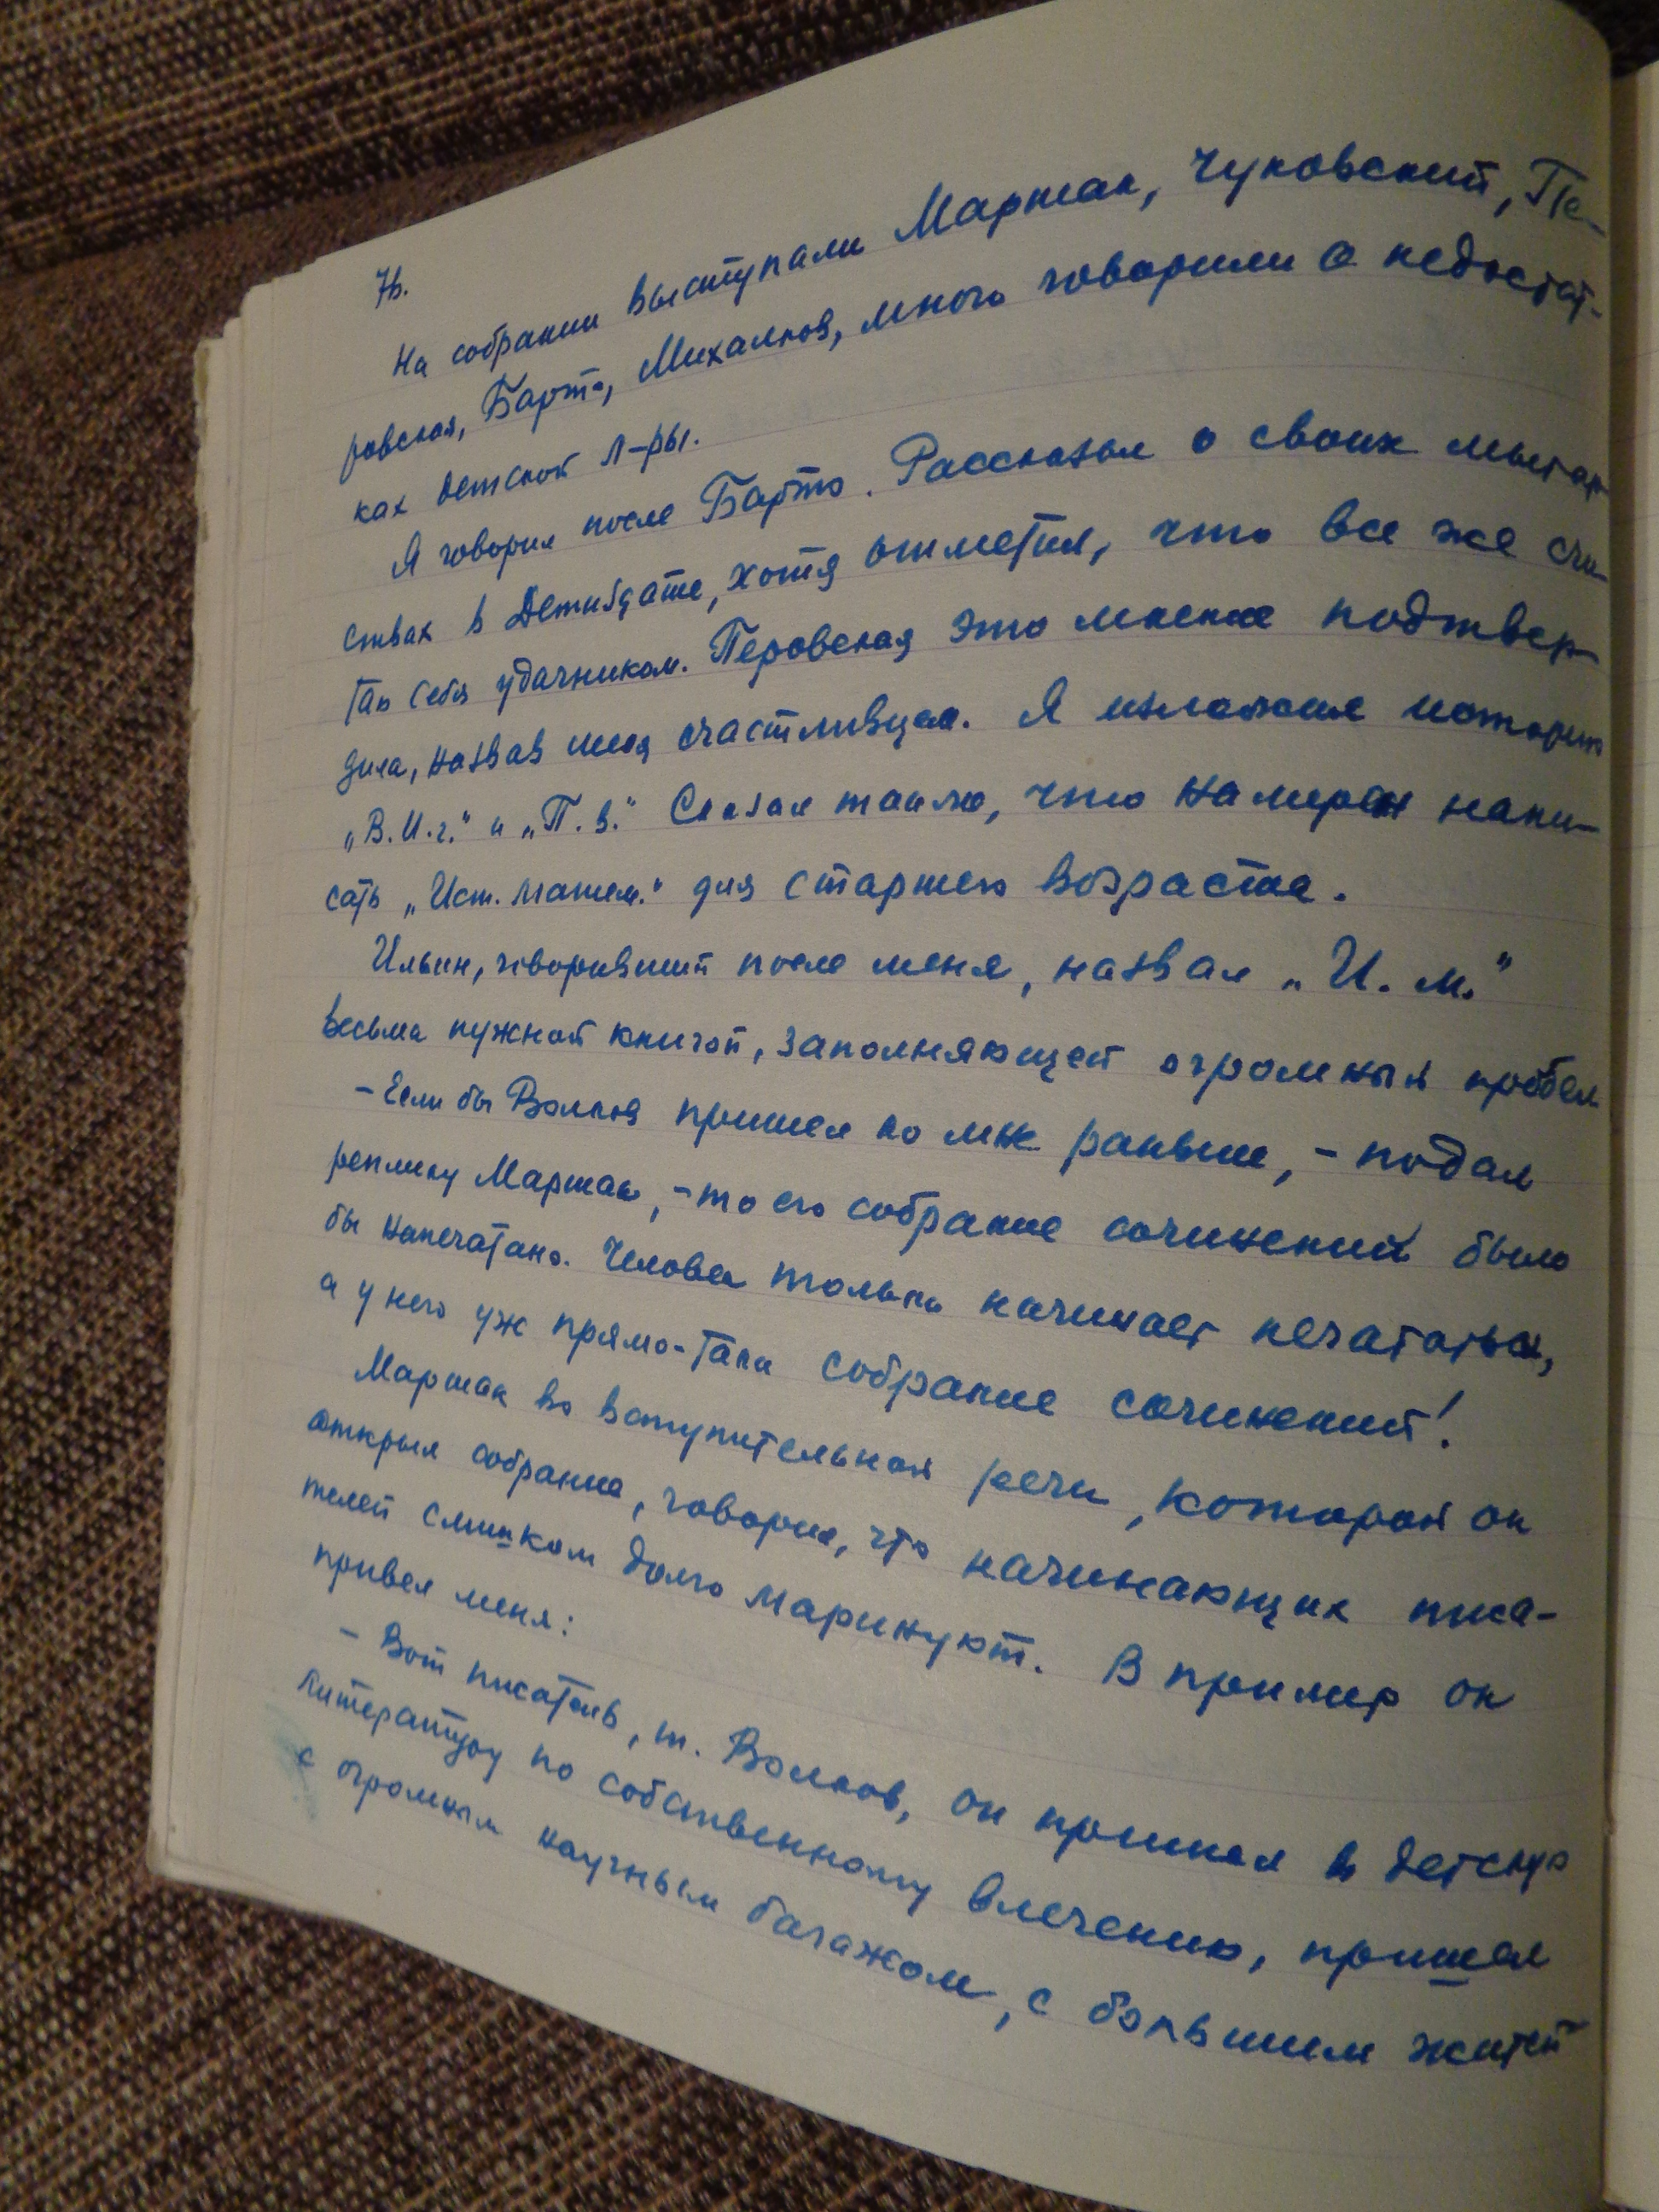 76.
На собрании выступали Маршак, Чуковский, Пе-
ровская, Барто, Михалков, много говорили о недостат-
ках детской л-ры.
Я говорил после Барто. Рассказал о своих мытар-
ствах в Детиздате, хотя отметил, что все же счи-
таю себя удачником. Перовская это мнение подтвер-
дила, назвав меня счастливцем. Я изложил историю
„В.И.г." и „П.в." Сказал также, что намерен напи-
сать „Ист. матем." для старшего возраста.
Ильин, говоривший после меня, назвал „И.м."
весьма нужной книгой, заполняющей огромный пробел
– Если бы Волков пришел ко мне раньше, – подал
реплику Маршак, – то его собрание сочинений было
бы напечатано. Человек только начинает печататься,
а у него уж прямо-таки собрание сочинений!
Маршак во вступительной речи, которой он
открыл собрание, говорил, что начинающих писа-
телей слишком долго маринуют. В пример он
привел меня:
– Вот писатель, т. Волков, он пришел в детскую
литературу по собственному влечению, пришел
с огромным научным багажом, с большим житей